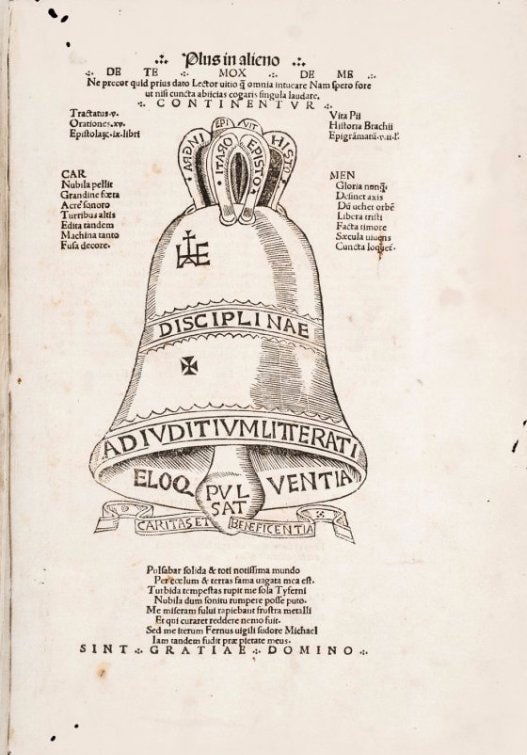 Plus in alieno
DE TE MOX DE ME
Ne precor quid prius dato Lector uitio q̃ omnia intueare Nam spero fore
ut nisi cuncta abiicias cogaris singula laudare.
CONTINENTVR
Tractatus.v.
Orationes.xv.
Epistolaꝝ.ix.libri
Vita Pii
Historia Brachii
Epigrãmatũ
CAR
Nubila pellit
Grandine fœta
Aere sonoro
Turribus altis
Edita tandem
Machina tanto
Fusa decore.
MEN
Gloria nonq̃
Desinet axis
Dũ uehet orbẽ
Libera tristi
Facta timore
Sæcula uiuens
Cuncta loquet.
EPI VIT
HISTO
ORATI
EPISTO
DISCIPLINAE
AD IVDITIVM LITTERATI
ELOQ VENTIA
PVL
SAT
CARITAS ET BENEFICENTIA
Pulsabar solida & toti notissima mundo
Per cœlum & terras fama uagata mea est.
Turbida tempestas rupit me sola Tyferni
Nubila dum sonitu rumpere posse puto.
Me miseram fului rapiebant frustra metalli
Et qui curaret reddere nemo fuit.
Sed me iterum Fernus uigili sudore Michael
Iam tandem fudit præ pietate meus.
SINT GRATIAE DOMINO